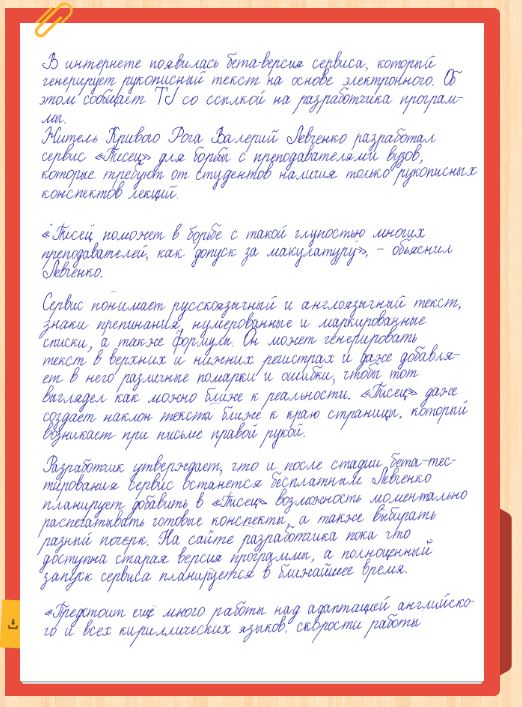 В интернете появилась бета-версия сервиса, который
генерирует рукописный текст на основе электронного. Об
этом сообщает TJ со ссылкой на разработчика програм-
мы.
Житель Кривого Рога Валерий Левченко разработал
сервис «Писец» для борьбы с преподавателями вузов,
которые требуют от студентов наличия только рукописных
конспектов лекций.
«Писец поможет в борьбе с такой глупостью многих
преподавателей, как допуск за макулатуру», - объяснил
Левченко.
Сервис понимает русскоязычный и англоязычный текст,
знаки препинания, нумерованные и маркированные
списки, а также формулы. Он может генерировать
текст в верхних и нижних регистрах и даже добавля-
ет в него различные помарки и ошибки, чтобы тот
выглядел как можно ближе к реальности. «Писец» даже
создает наклон текста ближе к краю страницы, который
возникает при письме правой рукой.
Разработчик утверждает, что и после стадии бета-тес-
тирования сервис останется бесплатным. Левченко
планирует добавить в «Писец» возможность моментально
распечатывать готовые конспекты, а также выбирать
разный почерк. На сайте разработчика пока что
доступна старая версия программы, а полноценный
запуск сервиса планируется в ближайшее время.
«Предстоит ещё много работы над адаптацией английско-
го и всех кириллических языков, скорости работы